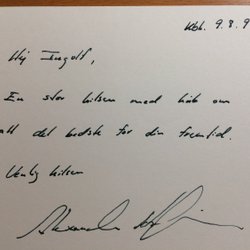 Kbh. 9.8.9
Hej Ingolf,
En stor hilsen med håb om
alt det bedste for din fremtid.
Venlig hilsen
Alexander